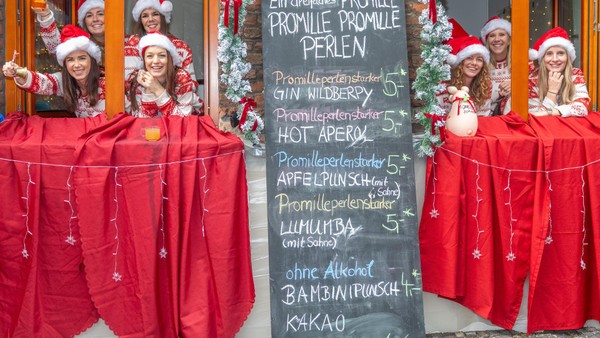 PROMILLE PROMILLE
PERLEN
Promilleperlenstarker 5,-*
GIN WILDBERRY
Promilleperlenstarker
HOT APEROL 5,-*
Promilleperlenstarker 5,-*
APFELPUNSCH (mit
Sahne)
Promilleperlenstarker
LUMUMBA 5,-*
(mit Sahne)
ohne Alkohol
BAMBINIPUNSCH 4,-*
KAKAO